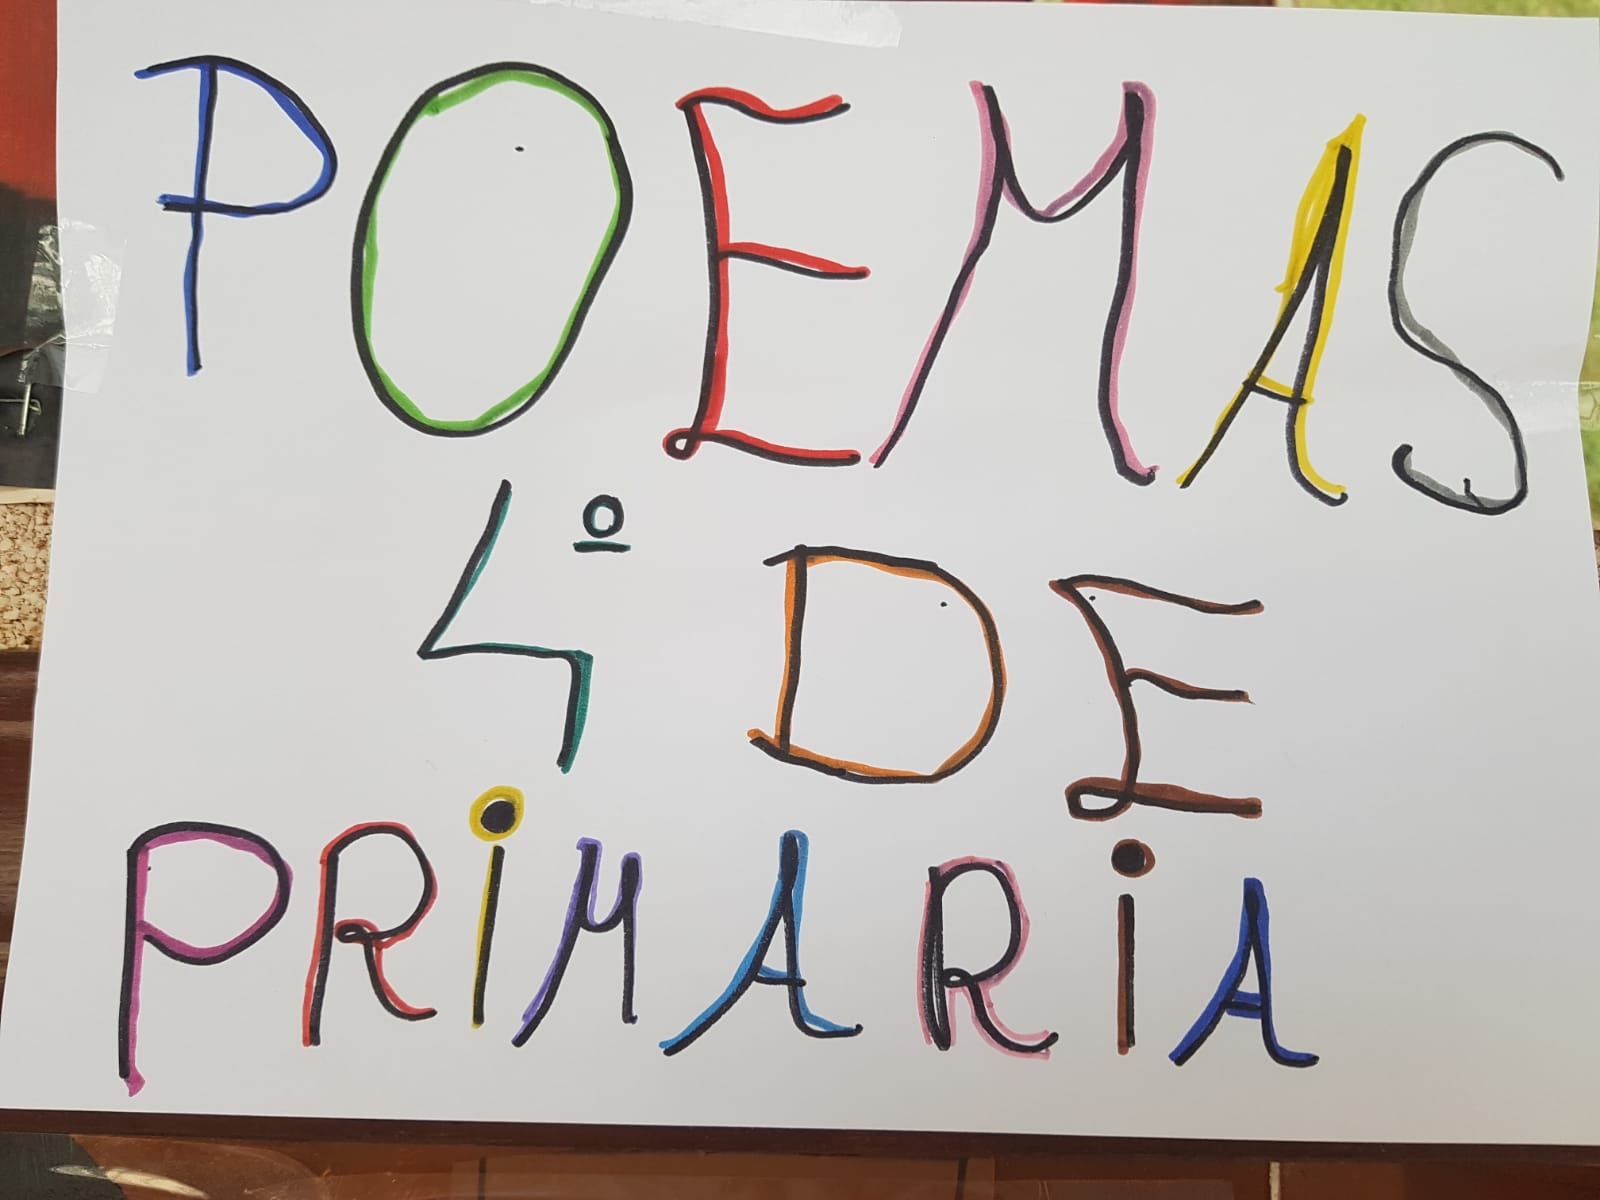 POEMAS
4º DE
PRiMARiA